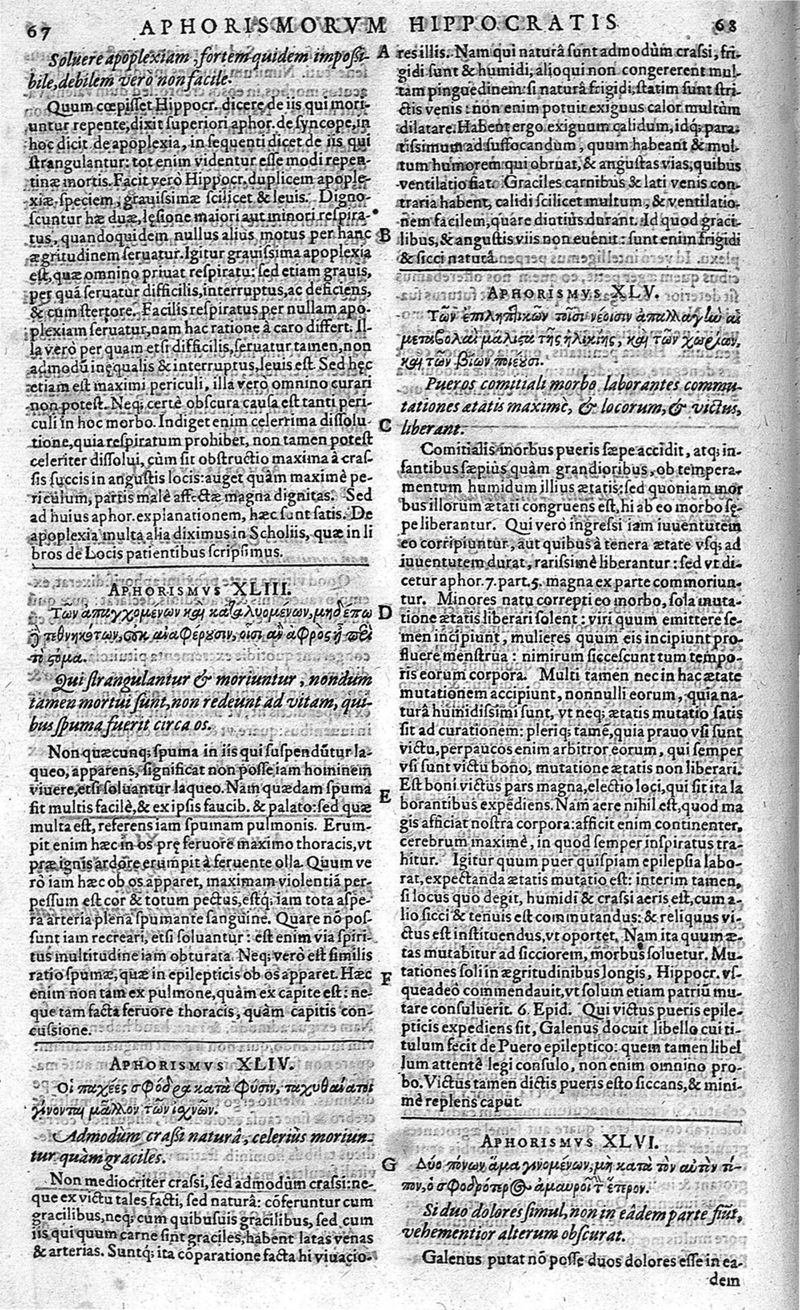 67 APHORISMORVM HIPPOCRATIS 68
Soluere apoplexiam, fortem quidem impoſsi-
bile, debilem verò non facile.
Quum cœpiſſet Hippocr. dicere de iis qui mori-
untur repente, dixit ſuperiori aphor. de ſyncope, in
hoc dicit de apoplexia, in ſequenti dicet de iis qui
ſtrangulantur: tot enim videntur eſſe modi repen-
tinæ mortis. Facit verò Hippocr. duplicem apople-
xiæ, ſpeciem, grauiſſimæ ſcilicet & leuis. Digno-
ſcuntur hæ duæ, lęſione maiori aut minori reſpira-
tus, quandoquidem nullus alius motus per hanc
ægritudinem ſeruatur. Igitur grauiſsima apoplexia
eſt, quæ omnino priuat reſpiratu: ſed etiam grauis,
per quã ſeruatur difficilis, interruptus, ac deficiens,
& cum ſtertore. Facilis reſpiratus per nullam apo-
plexiam ſeruatur, nam hac ratione à caro differt. Il-
la verò per quam etſi difficilis, ſeruatur tamen, non
admodũ inęqualis & interruptus, leuis eſt. Sed hęc
etiam eſt maximi periculi, illa vero omnino curari
non poteſt. Neq; certè obſcura cauſa eſt tanti peri-
culi in hoc morbo. Indiget enim celerrima diſſolu-
tione, quia reſpiratum prohibet, non tamen poteſt
celeriter diſſolui, cùm ſit obſtructio maxima à craſ-
ſis ſuccis in anguſtis locis: auget quàm maximè pe-
riculum, partis malè affectæ magna dignitas. Sed
ad huius aphor. explanationem, hæc ſunt ſatis. De
apoplexia multa alia diximus in Scholiis, quæ in li
bros de Locis patientibus ſcripſimus.
APHORISMVS XLIII.
Τῶν ἀπαγχομένων καὶ καταλυομένων, μηδέπω
τεθνηκότων, οὐκ ἀναφέρουσιν, οἷσι ἂν ἀφρὸς ᾖ περὶ
τὸ στόμα.
Qui ſtrangulantur & moriuntur, nondum
tamen mortui ſunt, non redeunt ad vitam, qui-
bus ſpuma fuerit circa os.
Non quæcunq; ſpuma in iis qui ſuſpendũtur la-
queo, apparens, ſignificat non poſſe iam hominem
viuere, etſi ſoluantur laqueo. Nam quædam ſpuma
fit multis facilè, & ex ipſis faucib. & palato: ſed quæ
multa eſt, referens iam ſpumam pulmonis. Erum-
pit enim hæc in os prę feruore maximo thoracis, vt
præ ignis ardore erumpit à feruente olla. Quum ve
rò iam hæc ob os apparet, maximam violentiã per-
peſſum eſt cor & totum pectus, eſtq; iam tota aſpe-
ra arteria plena ſpumante ſanguine. Quare nõ poſ-
ſunt iam recreari, etſi ſoluantur: eſt enim via ſpiri-
tus multitudine iam obturata. Neq; verò eſt ſimilis
ratio ſpumæ, quæ in epilepticis ob os apparet. Hæc
enim non tam ex pulmone, quàm ex capite eſt: ne-
que tam facta feruore thoracis, quàm capitis con-
cuſſione.
APHORISMVS XLIV.
Οἱ παχέες σφόδρα κατὰ φύσιν, ταχυθάνατοι
γίνονται μᾶλλον τῶν ἰσχνῶν.
Admodùm craſsi naturâ, celeriùs moriun-
tur quàm graciles.
Non mediocriter craſsi, ſed admodùm craſsi: ne-
que ex victu tales facti, ſed naturâ: cõferuntur cum
gracilibus, neq; cùm quibuſuis gracilibus, ſed cum
iis qui quum carne ſint graciles, habent latas venas
& arterias. Suntq; ita cõparatione facta hi viuacio-
A res illis. Nam qui naturâ ſunt admodùm craſsi, fri-
gidi ſunt & humidi, alioqui non congererent mul-
tam pinguedinem: ſi naturâ frigidi, ſtatim ſunt ſtri-
ctis venis: non enim potuit exiguus calor multùm
dilatare. Habent ergo exiguum calidum, idq; para-
tiſsimum ad ſuffocandum, quum habeant & mul-
tum humorem qui obruat, & anguſtas vias, quibus
ventilatio fiat. Graciles carnibus & lati venis con-
traria habent, calidi ſcilicet multum, & ventilatio-
nem facilem, quare diutiùs durant. Id quod graci-
B libus, & anguſtis viis non euenit: ſunt enim frigidi
& ſicci naturâ.
APHORISMVS XLV.
Τῶν ἐπιληπτικῶν τοῖσι νέοισιν ἀπαλλαγὴν αἱ
μεταβολαὶ μάλιστα τῆς ἡλικίης, καὶ τῶν χωρίων,
καὶ τῶν βίων ποιέουσι.
Pueros comitiali morbo laborantes commu-
tationes ætatis maximè, & locorum, & victus,
C liberant.
Comitialis morbus pueris ſæpe accidit, atq; in-
fantibus ſæpius quàm grandioribus, ob tempera-
mentum humidum illius ætatis: ſed quoniam mor
bus illorum ætati congruens eſt, hi ab eo morbo ſę-
pe liberantur. Qui verò ingreſsi iam iuuentutem
eo corripiuntur, aut quibus à tenera ætate vſq; ad
iuuentutem durat, rariſsimè liberantur: ſed vt di-
cetur aphor. 7. part. 5. magna ex parte commoriun-
tur. Minores natu correpti eo morbo, ſola muta-
D tione ætatis liberari ſolent: viri quum emittere ſe-
men incipiunt, mulieres quum eis incipiunt pro-
fluere menſtrua: nimirum ſicceſcunt tum tempo-
ris eorum corpora. Multi tamen nec in hac ætate
mutationem accipiunt, nonnulli eorum, quia na-
turâ humidiſsimi ſunt, vt neq; ætatis mutatio ſatis
ſit ad curationem: pleriq; tamẽ, quia prauo vſi ſunt
victu, perpaucos enim arbitror eorum, qui ſemper
vſi ſunt victu bono, mutatione ætatis non liberari.
Eſt boni victus pars magna, electio loci, qui ſit ita la
E borantibus expediens. Nam aere nihil eſt, quod ma
gis afficiat noſtra corpora: afficit enim continenter,
cerebrum maximè, in quod ſemper inſpiratus tra-
hitur. Igitur quum puer quiſpiam epilepſia labo-
rat, expectanda ætatis mutatio eſt: interim tamen,
ſi locus quo degit, humidi & craſsi aeris eſt, cum a-
lio ſicci & tenuis eſt commutandus: & reliquus vi-
ctus eſt inſtituendus, vt oportet. Nam ita quum æ-
tas mutabitur ad ſicciorem, morbus ſoluetur. Mu-
tationes ſoli in ægritudinibus longis, Hippocr. vſ-
F queadeò commendauit, vt ſolum etiam patriũ mu-
tare conſuluerit. 6. Epid. Qui victus pueris epile-
pticis expediens ſit, Galenus docuit libello cui ti-
tulum fecit de Puero epileptico: quem tamen libel
lum attentè legi conſulo, non enim omnino pro-
bo. Victus tamen dictis pueris eſto ſiccans, & mini-
mè replens caput.
APHORISMVS XLVI.
G Δύο πόνων ἅμα γινομένων, μὴ κατὰ τὸν αὐτὸν τό-
πον, ὁ σφοδρότερος ἀμαυροῖ τ̀ ἕτερον.
Si duo dolores ſimul, non in eâdem parte fiũt,
vehementior alterum obſcurat.
Galenus putat nõ poſſe duos dolores eſſe in ea-
dem